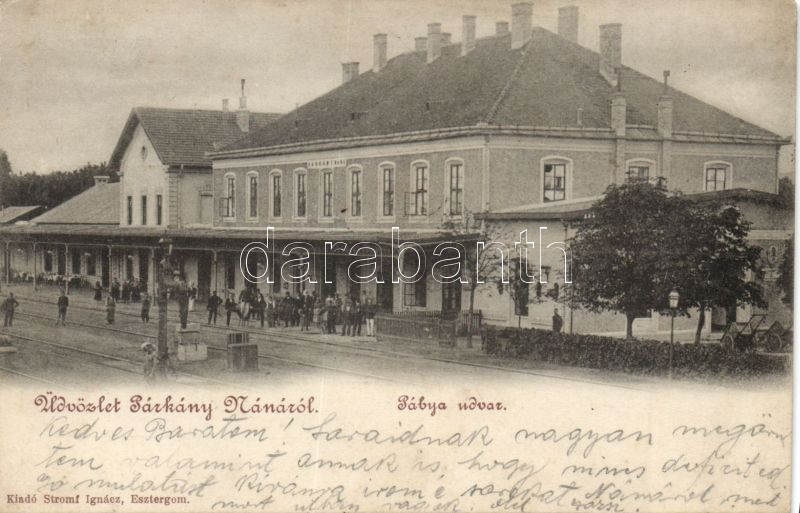 PARKANY NANA
darabanth
Üdvözlet Párkány Nánáról.
Pábya udvar.
Kedves Barátom! Soraidnak nagyon megörül
tem valamint annak is, hogy nincs deficited
Jó mulatást kívánva irom e sorokat Nánáról
most utban vagyok
Kiadó Stromf Ignácz, Esztergom.